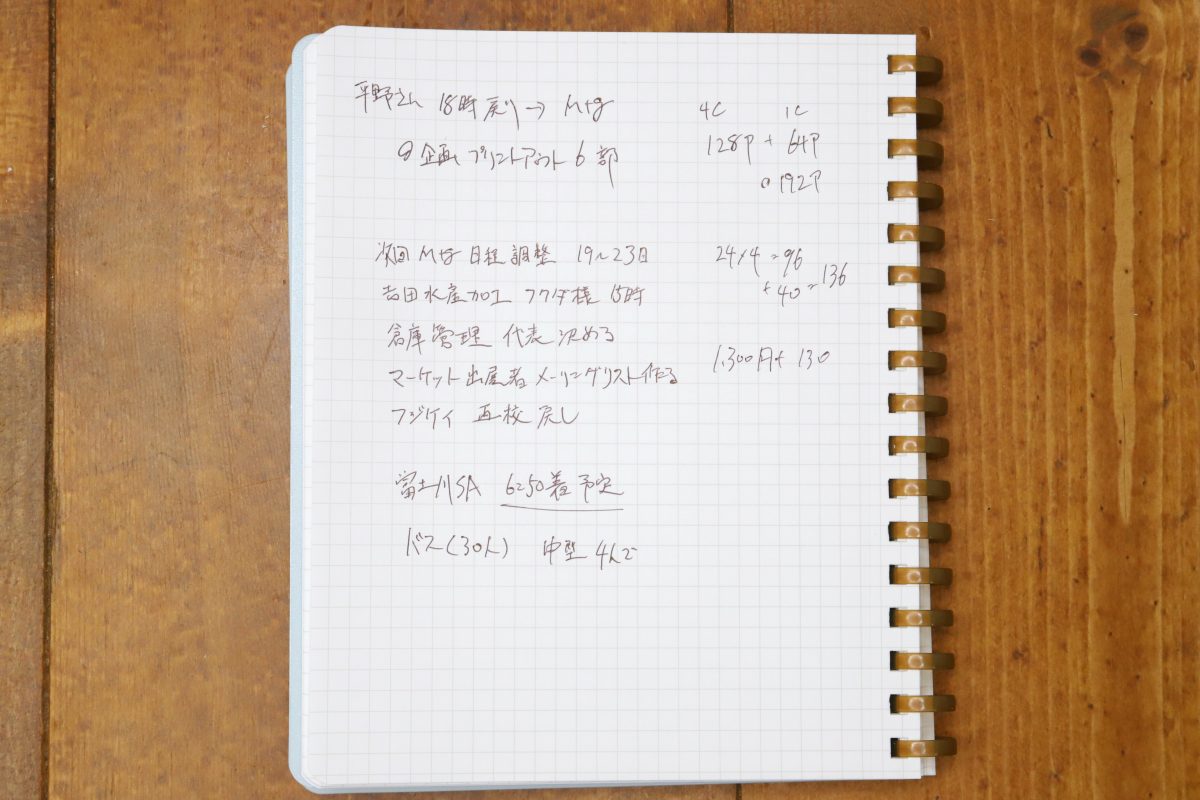 平野さん 18時戻り→Mtg
企画 プリントアウト 6部
次回 Mtg 日程調整 19〜23日
吉田水産加工 フクダ様 15時
倉庫管理 代表決める
マーケット出店者メーリングリスト作る
フジケイ 再校戻し
富士川SA 6:50着予定
バス(30人) 中型 4人で
4C 1C
128P + 64P
192P
24×4=96
+40=136
1.300円+130